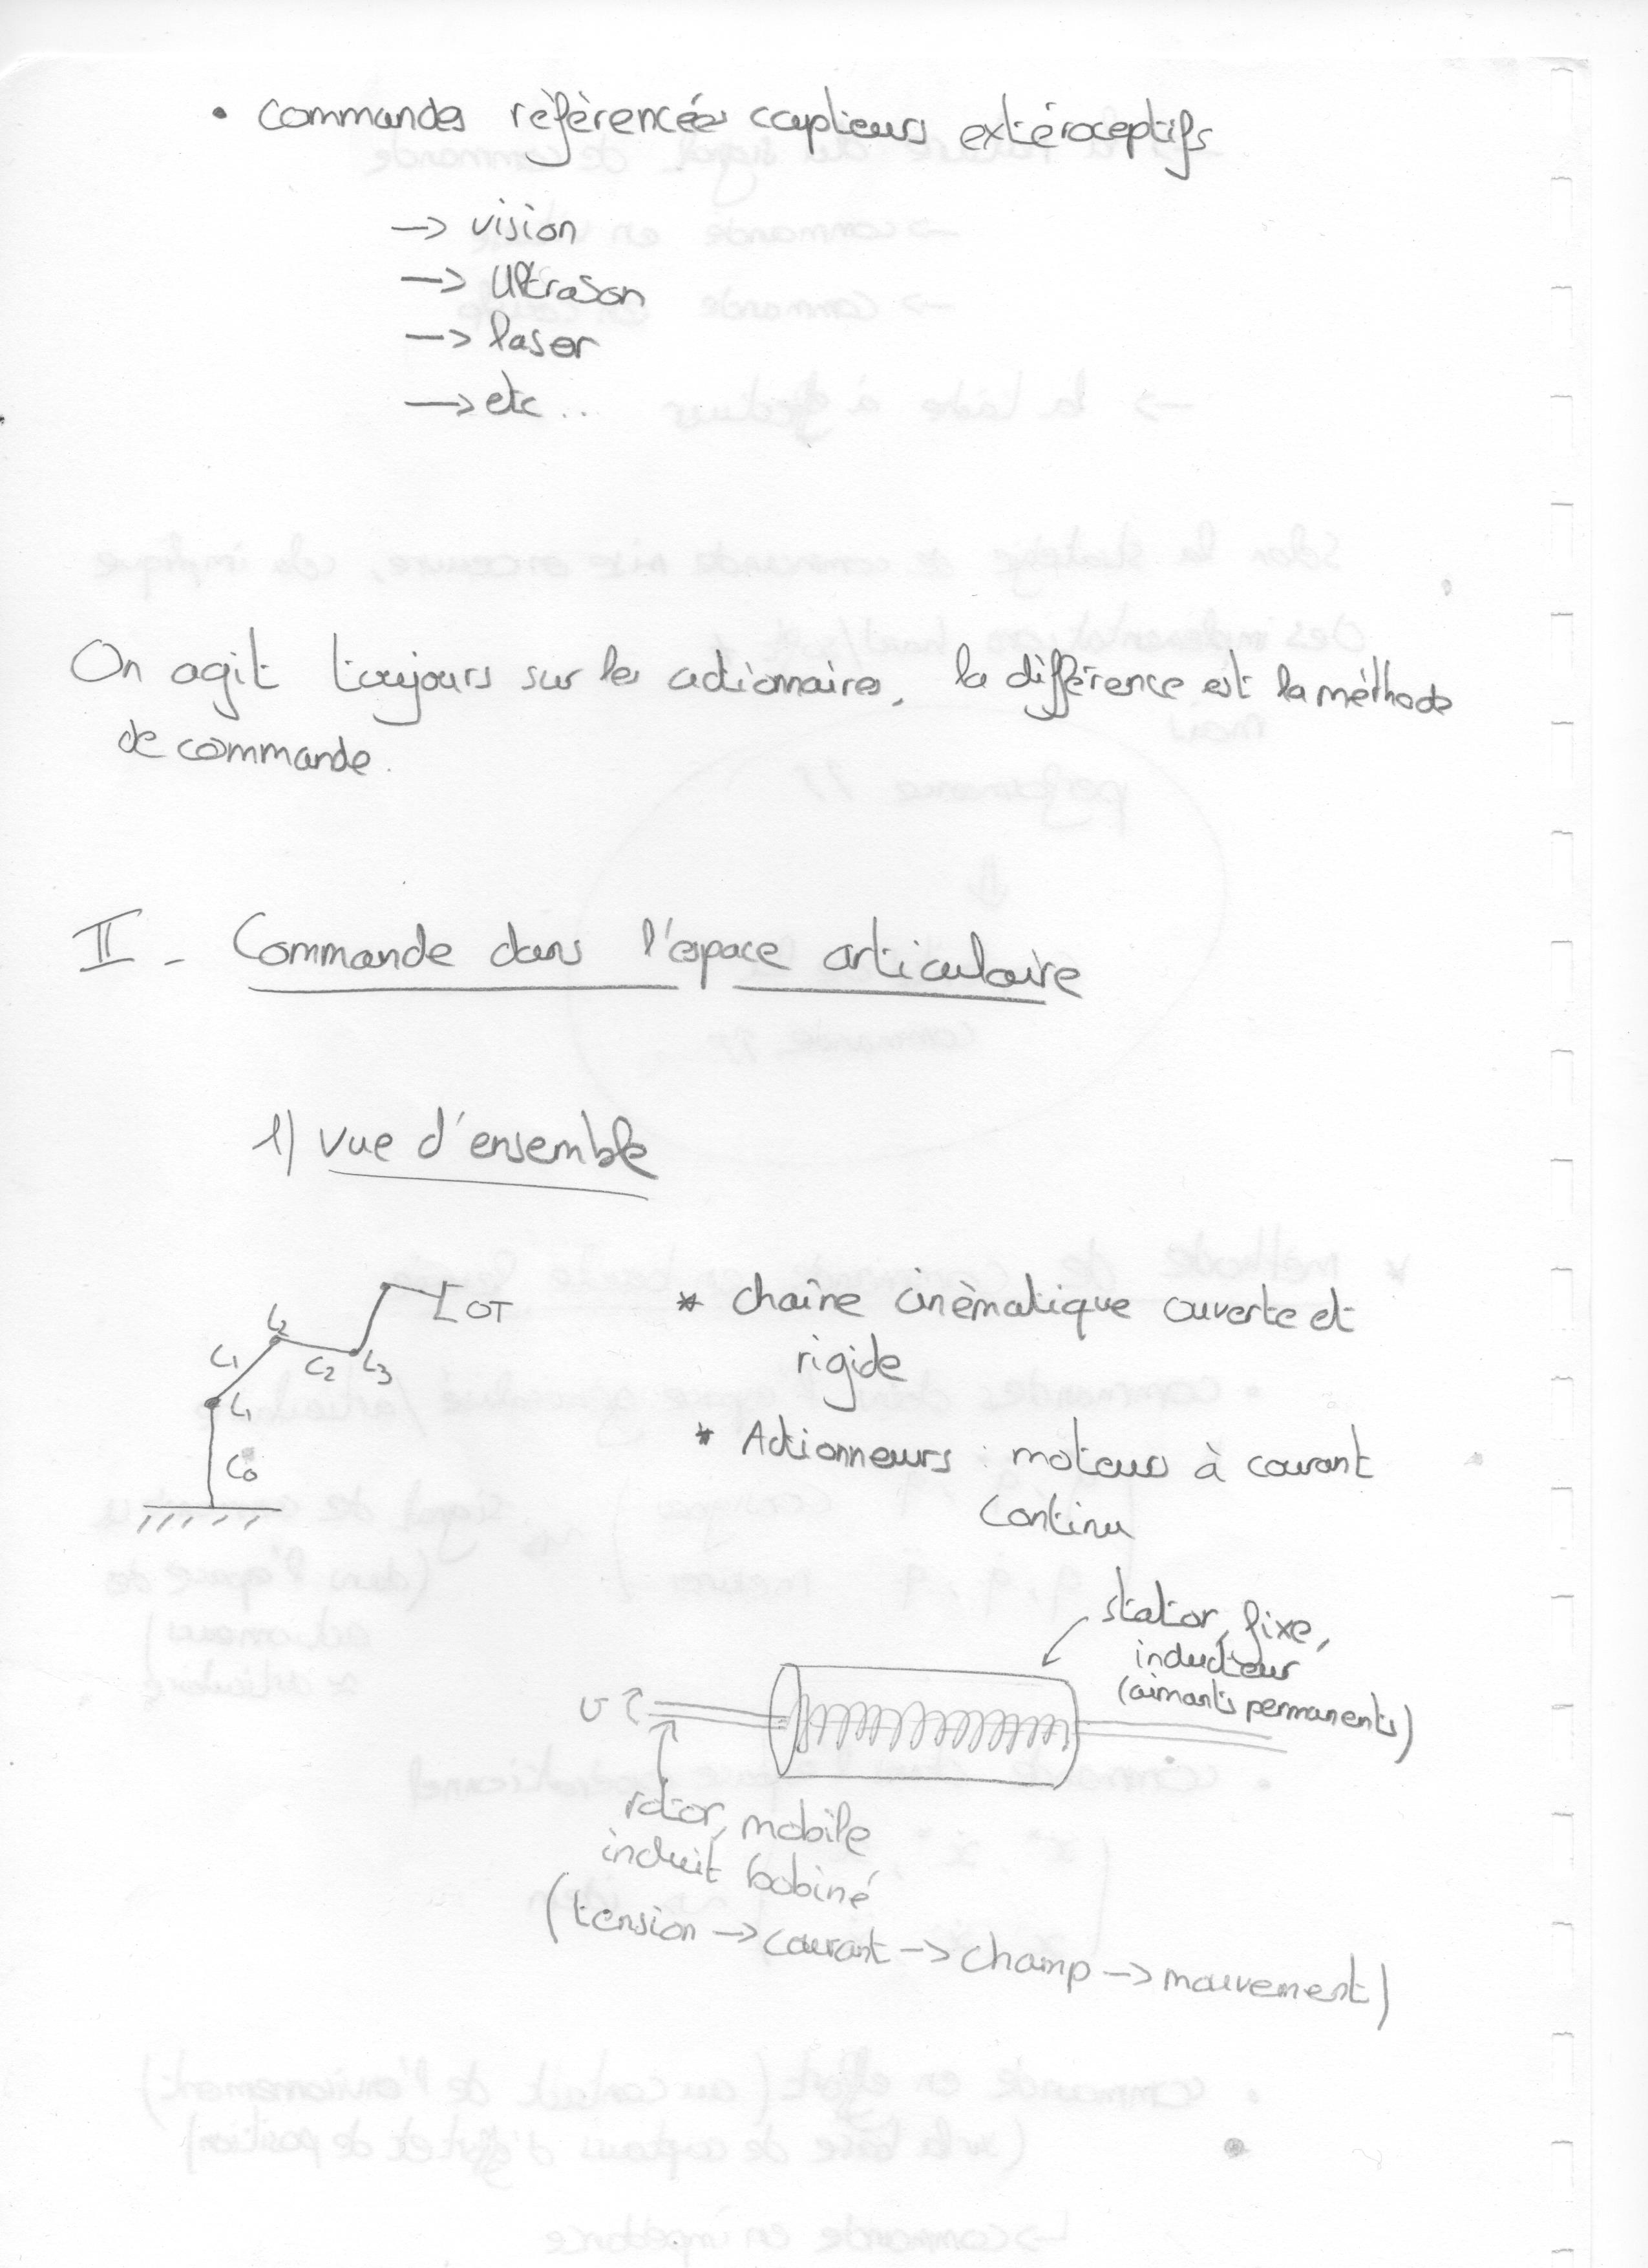 • commandes référencées capteurs extéroceptifs
→ vision
→ Ultrason
→ laser
→ etc..
On agit toujours sur les actionnaires, la différence est la méthode
de commande.
II - Commande dans l'espace articulaire
1) Vue d'ensemble
OT
L2
C1
C2 L3
L1
C0
* chaîne cinématique ouverte et
rigide
* Actionneurs : moteurs à courant
continu
stator, fixe,
inducteur
(aimants permanents)
U
rotor, mobile
induit bobiné
(tension → courant → champ → mouvement)